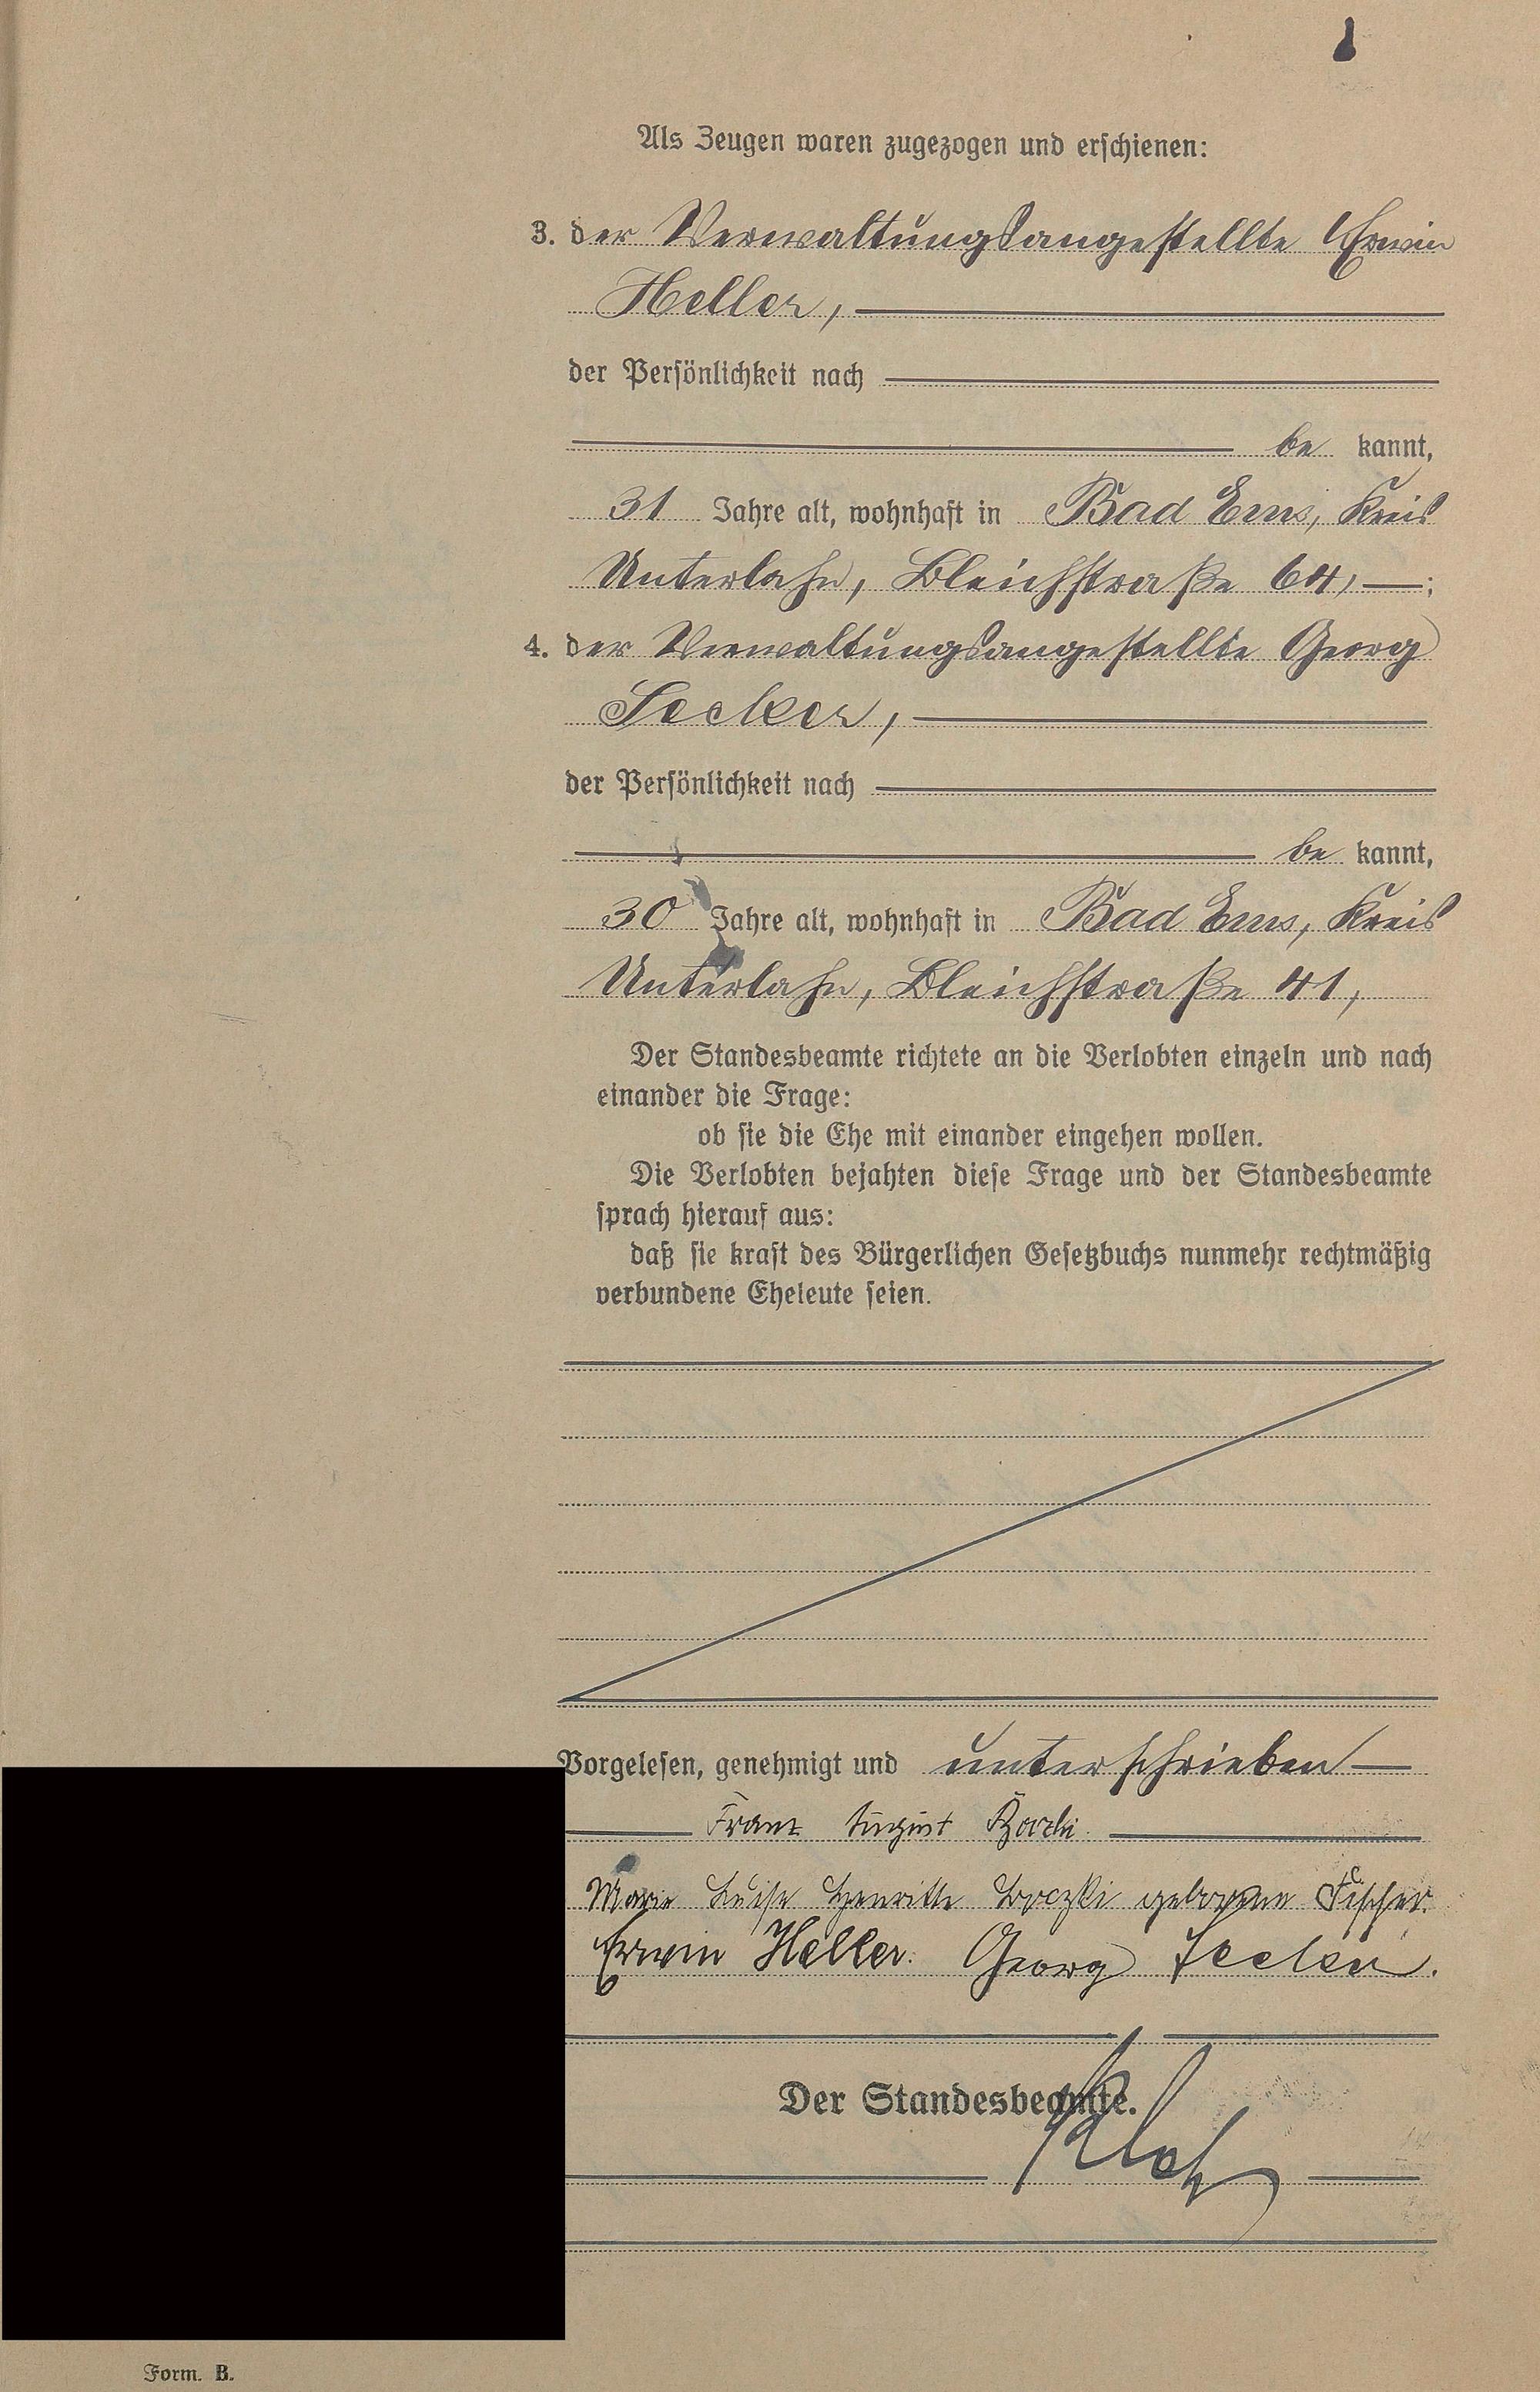 Als Zeugen waren zugezogen und erschienen:
3. der Verwaltungsangestellte Erwin
Heller,
der Persönlichkeit nach
be kannt,
31 Jahre alt, wohnhaft in Bad Ems, Kreis
Unterlahn, Bleichstraße 64, ;
4. der Verwaltungsangestellte Georg
Seeker,
der Persönlichkeit nach
be kannt,
30 Jahre alt, wohnhaft in Bad Ems, Kreis
Unterlahn, Bleichstraße 41,
Der Standesbeamte richtete an die Verlobten einzeln und nach
einander die Frage:
ob sie die Ehe mit einander eingehen wollen.
Die Verlobten bejahten diese Frage und der Standesbeamte
sprach hierauf aus:
daß sie kraft des Bürgerlichen Gesetzbuchs nunmehr rechtmäßig
verbundene Eheleute seien.
Vorgelesen, genehmigt und unterschrieben
Franz August
Marie Luise geborene Fischer.
Erwin Heller. Georg
Der Standesbeamte.
Form. B.